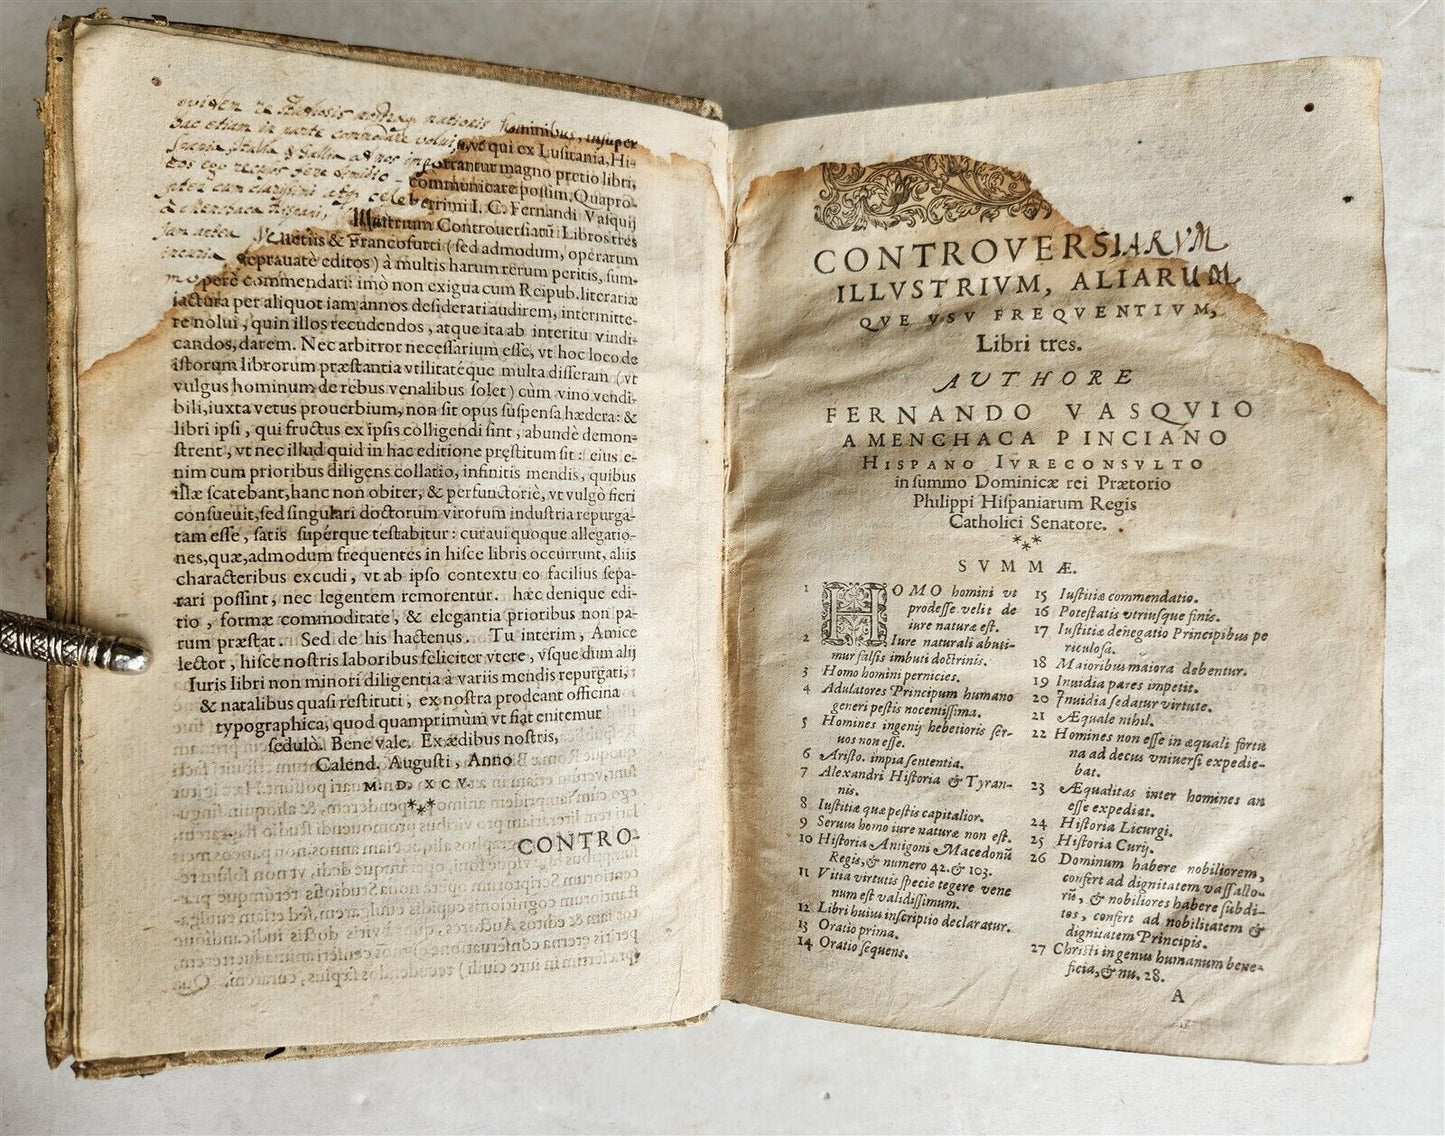 quidem re
hominibus, insuper
hac etiam in parte commodare volui, vt qui ex Lusitania, Hi-
importantur magno pretio libri,
communicare possim. Quapro-
celeberrimi I. C. Fernandi Vasquij
à Menchaca Hispani, Illustrium Controuersiarū Libros tres
Venetiis & Francofurti (sed admodum, operarum
deprauatè editos) à multis harum rerum peritis, sum-
mopere commendari: imò non exigua cum Reipub. literariæ
iactura per aliquot iam annos desiderari audirem, intermitte-
re nolui, quin illos recudendos, atque ita ab interitu vindi-
candos, darem. Nec arbitror necessarium esse, vt hoc loco de
istorum librorum præstantia vtilitatéque multa disseram (vt
vulgus hominum de rebus venalibus solet) cùm vino vendi-
bili, iuxta vetus prouerbium, non sit opus suspensa hædera: &
libri ipsi, qui fructus ex ipsis colligendi sint, abundè demon-
strent, vt nec illud quid in hac editione pręstitum sit: eius e-
nim cum prioribus diligens collatio, infinitis mendis, quibus
illæ scatebant, hanc non obiter, & perfunctoriè, vt vulgò fieri
consueuit, sed singulari doctorum virorum industria repurga-
tam esse, satis supérque testabitur: curaui quoque allegatio-
nes, quæ, admodum frequentes in hisce libris occurrunt, aliis
characteribus excudi, vt ab ipso contextu eo facilius sepa-
rari possint, nec legentem remorentur. hæc denique edi-
tio, formæ commoditate, & elegantia prioribus non pa-
rum præstat. Sed de his hactenus. Tu interim, Amice
lector, hisce nostris laboribus feliciter vtere, vsque dum alij
Iuris libri non minori diligentia à variis mendis repurgati,
& natalibus quasi restituti, ex nostra prodeant officina
typographica, quod quamprimùm vt fiat enitemur
sedulò. Bene vale. Ex ædibus nostris,
Calend. Augusti, Anno
M. D. XCV.
***
CONTRO-
CONTROVERSIARVM
ILLVSTRIVM, ALIARUM
QVE VSV FREQVENTIVM,
Libri tres.
AVTHORE
FERNANDO VASQVIO
A MENCHACA PINCIANO
HISPANO IVRECONSVLTO
in summo Dominicæ rei Prætorio
Philippi Hispaniarum Regis
Catholici Senatore.
***
SVMMÆ.
1 HOMO homini vt
prodesse velit de
iure naturæ est.
2 Iure naturali abuti-
mur falsis imbuti doctrinis.
3 Homo homini pernicies.
4 Adulatores Principum humano
generi pestis nocentissima.
5 Homines ingenij hebetioris ser-
uos non esse.
6 Aristo. impia sententia.
7 Alexandri Historia & Tyran-
nis.
8 Iustitiæ quæ pestis capitalior.
9 Seruus homo iure naturæ non est.
10 Historia Antigoni Macedonū
Regis, & numero 42. & 103.
11 Vitia virtutis specie tegere vene
num est validissimum.
12 Libri huius inscriptio declaratur.
13 Oratio prima.
14 Oratio sequens.
15 Iustitiæ commendatio.
16 Potestatis vtriusque finis.
17 Iustitiæ denegatio Principibus pe
riculosa.
18 Maioribus maiora debentur.
19 Inuidia pares impetit.
20 Inuidia sedatur virtute.
21 Æquale nihil.
22 Homines non esse in æquali fortu
na ad decus vniuersi expedie-
bat.
23 Æqualitas inter homines an
esse expediat.
24 Historia Licurgi.
25 Historia Curij.
26 Dominum habere nobiliorem,
confert ad dignitatem vassallo-
rū, & nobiliores habere subdi-
tos, confert ad nobilitatem &
dignitatem Principis.
27 Christi in genus humanum bene-
ficia, & nu. 28.
A